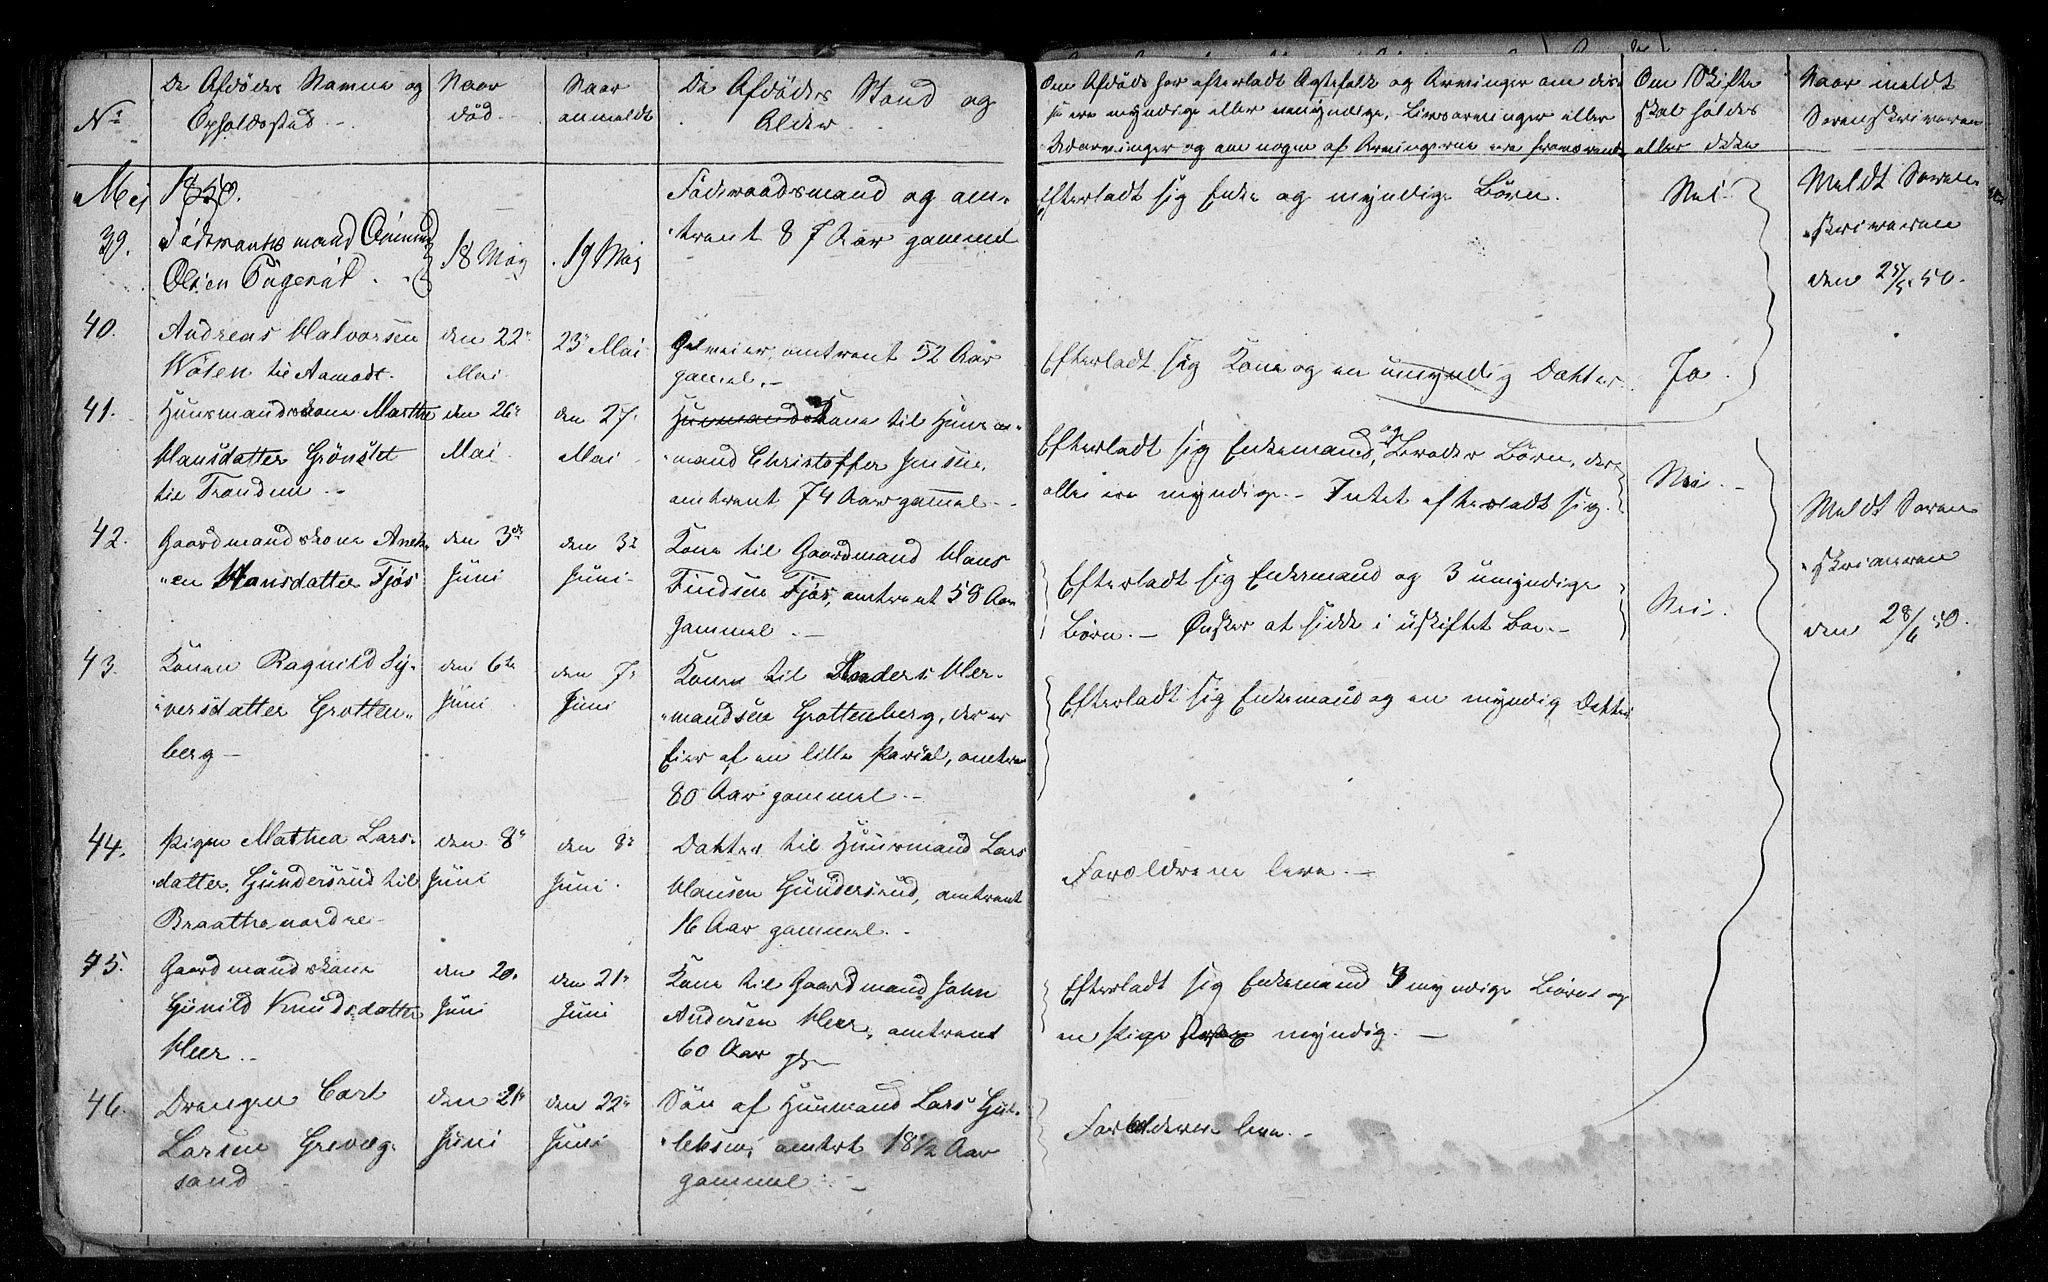 No
De Afdødes Navne og
Opholdssted
Naar
død
Naar
anmeldt
De Afdødes Stand og
Alder
Om Afdøde har efterladt Ægtefælle og Arvinger om dis-
se ere myndige eller umyndige, Livsarvinger eller
Udarvinger og om nogen af Arvingerne ere fraværende
Om Skifte
skal holdes
eller ikke
Naar meldt
Sorenskriveren
Mei 1850.
39.
Føderaadsmand Omund
Olsen
18 Mai
19 Mai
Føderaadsmand og om-
trent 87 Aar gammel
Efterladt sig Enke og myndige Børn.
Nei.
Meldt Soren-
skriveren
den 25/5 50.
40.
Andreas Halvorsen
Wølen til Aamodt.
den 22de
Mai
23de Mai
Gelveier, omtrent 52 Aar
gammel.
Efterladt sig Kone og en umyndig Datter.
Ja.
41.
Huusmandskone Marthe
Hansdatter Grønslet
til Tranдem.
den 26de
Mai
den 27.
Mai
Huusmandskone til Huus-
mand Christoffer Jensen,
omtrent 74 Aar gammel.
Efterladt sig Enkemand, og Broder Børn, der
alle ere myndige. Intet efterladt sig.
Nei.
42.
Gaardmandskone Anek-
en Hansdatter Fjøs
den 3de
Juni
den 3de
Juni
Kone til Gaardmand Hans
Findsen Fjøs, omtrent 58 Aar
gammel.
Efterladt sig Enkemand og 3 umyndige
Børn. Ønsker at sidde i uskiftet Boe.
Nei.
Meldt Soren-
skriveren
den 28/6 50.
43.
Konen Ragnild Sy-
versdatter Grotten-
berg
den 6te
Juni
den 7de
Juni
Kone til Anders Her-
mandsen Grottenberg, der er
Eier af en lille Parsel, omtrent
80 Aar gammel.
Efterladt sig Enkemand og en myndig Datter
44.
Pigen Mathea Lars-
datter, Gundersrud til
Braathe nordre
den 8de
Juni
den 8de
Juni.
Datter til Huusmand Lars
Hansen Gundersrud, omtrent
16 Aar gammel.
Forældrene leve.
45.
Gaardmandskone
Gunild Knudsdatter
Heer.
den 20.
Juni
den 21de
Juni
Kone til Gaardmand John
Andersen Heer, omtrent
60 Aar gl
Efterladt sig Enkemand 4 myndige Børn og
en Pige myndig.
46.
Drengen Carl
Larsen Grevæg-
sand
den 21de
Juni
den 22de
Juni
Søn af Huusmand Lars Gul-
leksen, omtrt 18½ Aar
gammel
Forælderne leve.